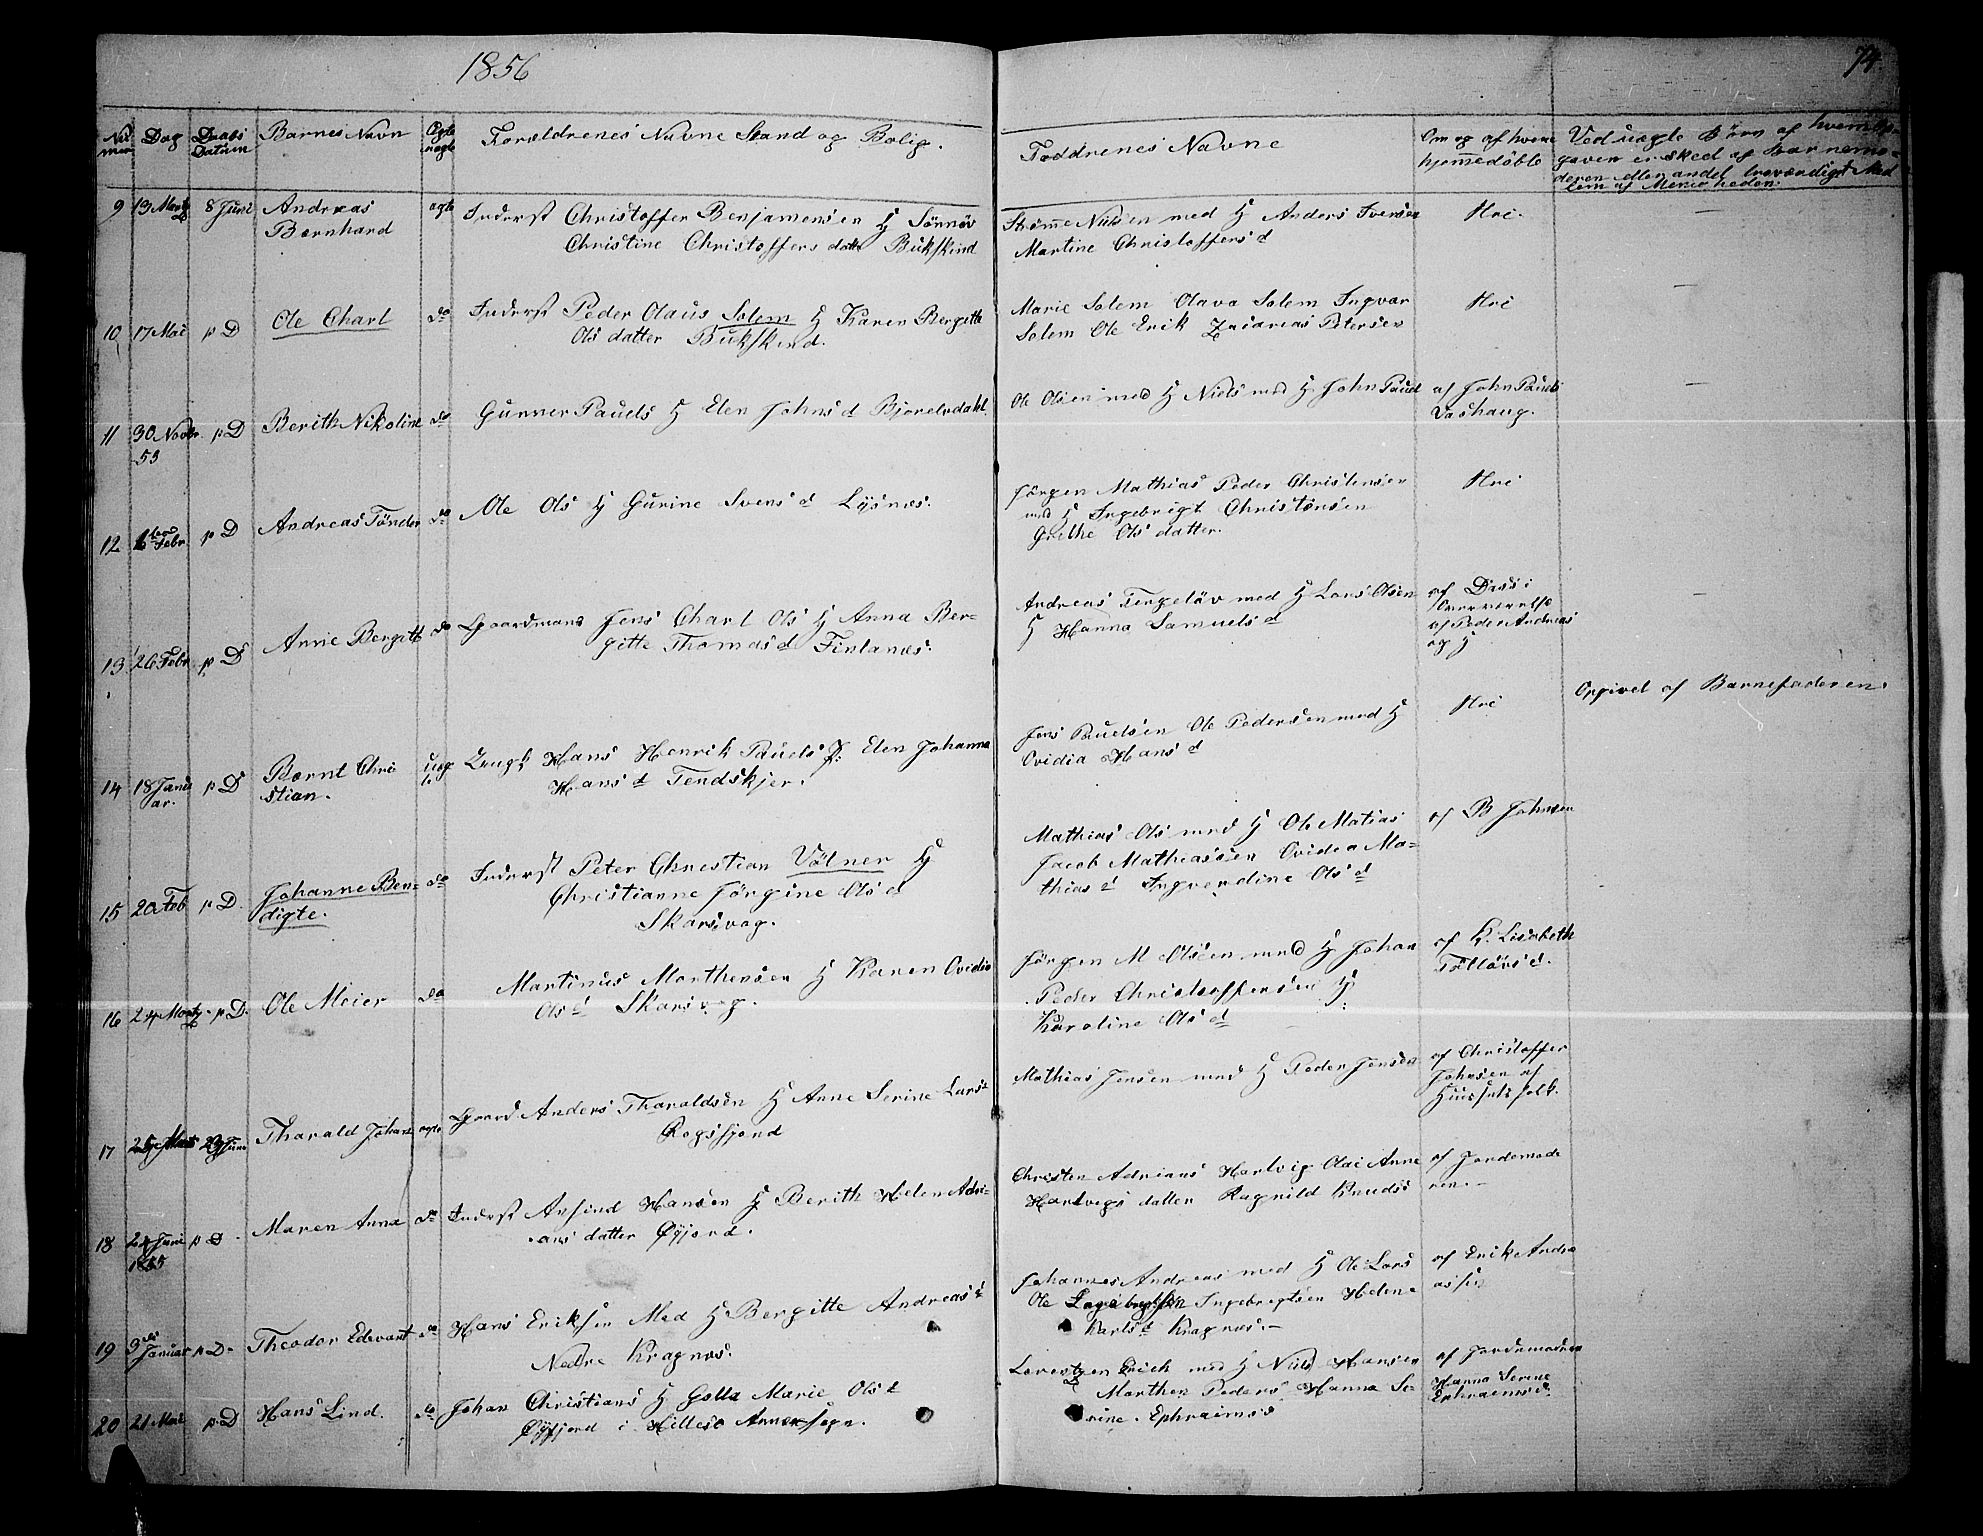 1856
74
Nummer Dag Daabs Datum Barnes Navn Ægte uægte Forældrenes Navne Stand og Bolig. Faddrenes Navne Om og af hvem hjemmedöbte Ved uægte Börn af hvem Opgaven er sked af Barnemoderen eller andet troværdigt Medlem af Menigheden.
9 13 Marts 8 Juni Andreas Bærnhard ægte Inderst Christoffer Benjamensen H Sönnöv
Christine Christoffers datter Bukskind
Strømme Nilsen med H Anders Ivensen
Martine Christoffers d
Nei. –
10 17 Mai p D Ole Charl do Inderst Peder Olaus Solem H Karen Bergitte
Ols datter Bukskind.
Marie Solem Olava Solem Ingvar
Solem Ole Erik Zacarias Petersen
Nei –
11 30 Novbr. 55 p D Berith Nikoline do Gunner Pauels H Elen Johns d Bjorelvdahl.
Ole Olsen med H Niels med H John Pauel
af John Pauels
Vashaug. –
12 Febr. p D Andreas Tönder do Ole Ols H Gurine Svens d Lysnæs.
Jörgen Mathias Peder Christensen
med H Ingebrigt Christensen
Grethe Ols datter.
Nei
13 26 Febr p D Anne Bergitte do Gaardmand Jens Charl Ols H Anna Ber-
gitte Thomas d Finlanæs.
Andreas Tergeläv med H Lars Olsen
H Hanna Samuels d
af Diss i
Overværelse
af Peder Andreas
og H –
14 18 Januar. p D Bærnt Christian. uægte Ungk Hans Henrik Pauels P: Elen Johanna
Hans d Tendskjer.
Jens Paulsen Ole Pedersen med H
Ovidia Hans d
Nei Opgivet af Barnefaderen.
15 20 Feb p D. Johanne Bendigte. do Inderst Peter Christian Völner H
Christianne Jörgine Ols d
Skarsvag.
Mathias Ols med H Ole Matias
Jacob Mathiassen Ovidia Ma-
thias d Ingverdine Ols d
af B Johnsen
16 24 Marts p D. Ole Meier do Martinus Marthensen H Karen Ovidia
Ols d Skarsvag.
Jörgen M Olsen med H Johan
Peder Christoffersen H
Karoline Ols d
af K. Lisabeth
Tollövs d.
17 25 Marts 29 Juni Tharald Johan ægte Gaard Anders Tharaldsen H Anne Serine Lars d
Rogsfjord
Mathias Jensen med H Peder Jensen
af Christoffer
Johnsen af
Huusets folk.
18 24 Juni 1855 p D Maren Anna do Inderst Arfind Hansen H Berith Helen Adri-
ans datter Øyjord.
Christen Adrians Hartvig Olai Anne
Hartvigs datter Ragnild Knuds
af Jordemode
ren. –
19 9 Januar p D. Theodor Edevart do Hans Eriksen Med H Bergitte Andreas d
Nedre Kragnæs.
Johannes Andreas med H Ole Lars
Ole Ingebregtsen Helene
Karls d Kragnæs. –
af Erik Andre
assen
20 21 Mai p D Hans Lind. do Johan Christians H Golla Marie Ols d
Øyfjord i Hillesö Annexsogn.
Lorentzen Erick med H Niels Hansen
Marthen Peders Hanna Se-
rine. Ephraims d
af Jordemoderen
Hanna Serine
Ephraims d.